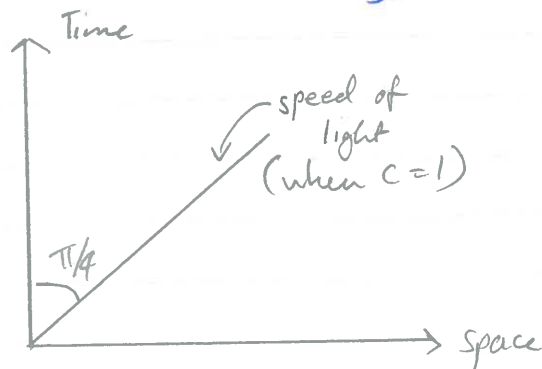 Time
speed of
light
(when c=1)
π/4
Space